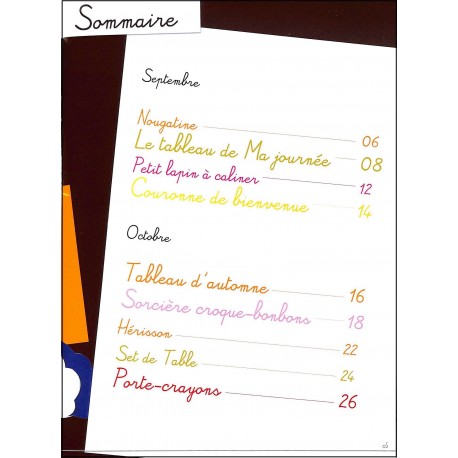 Sommaire
Septembre
Nougatine 06
Le tableau de Ma journée 08
Petit lapin à caliner 12
Couronne de bienvenue 14
Octobre
Tableau d'automne 16
Sorcière croque-bonbons 18
Hérisson 22
Set de Table 24
Porte-crayons 26